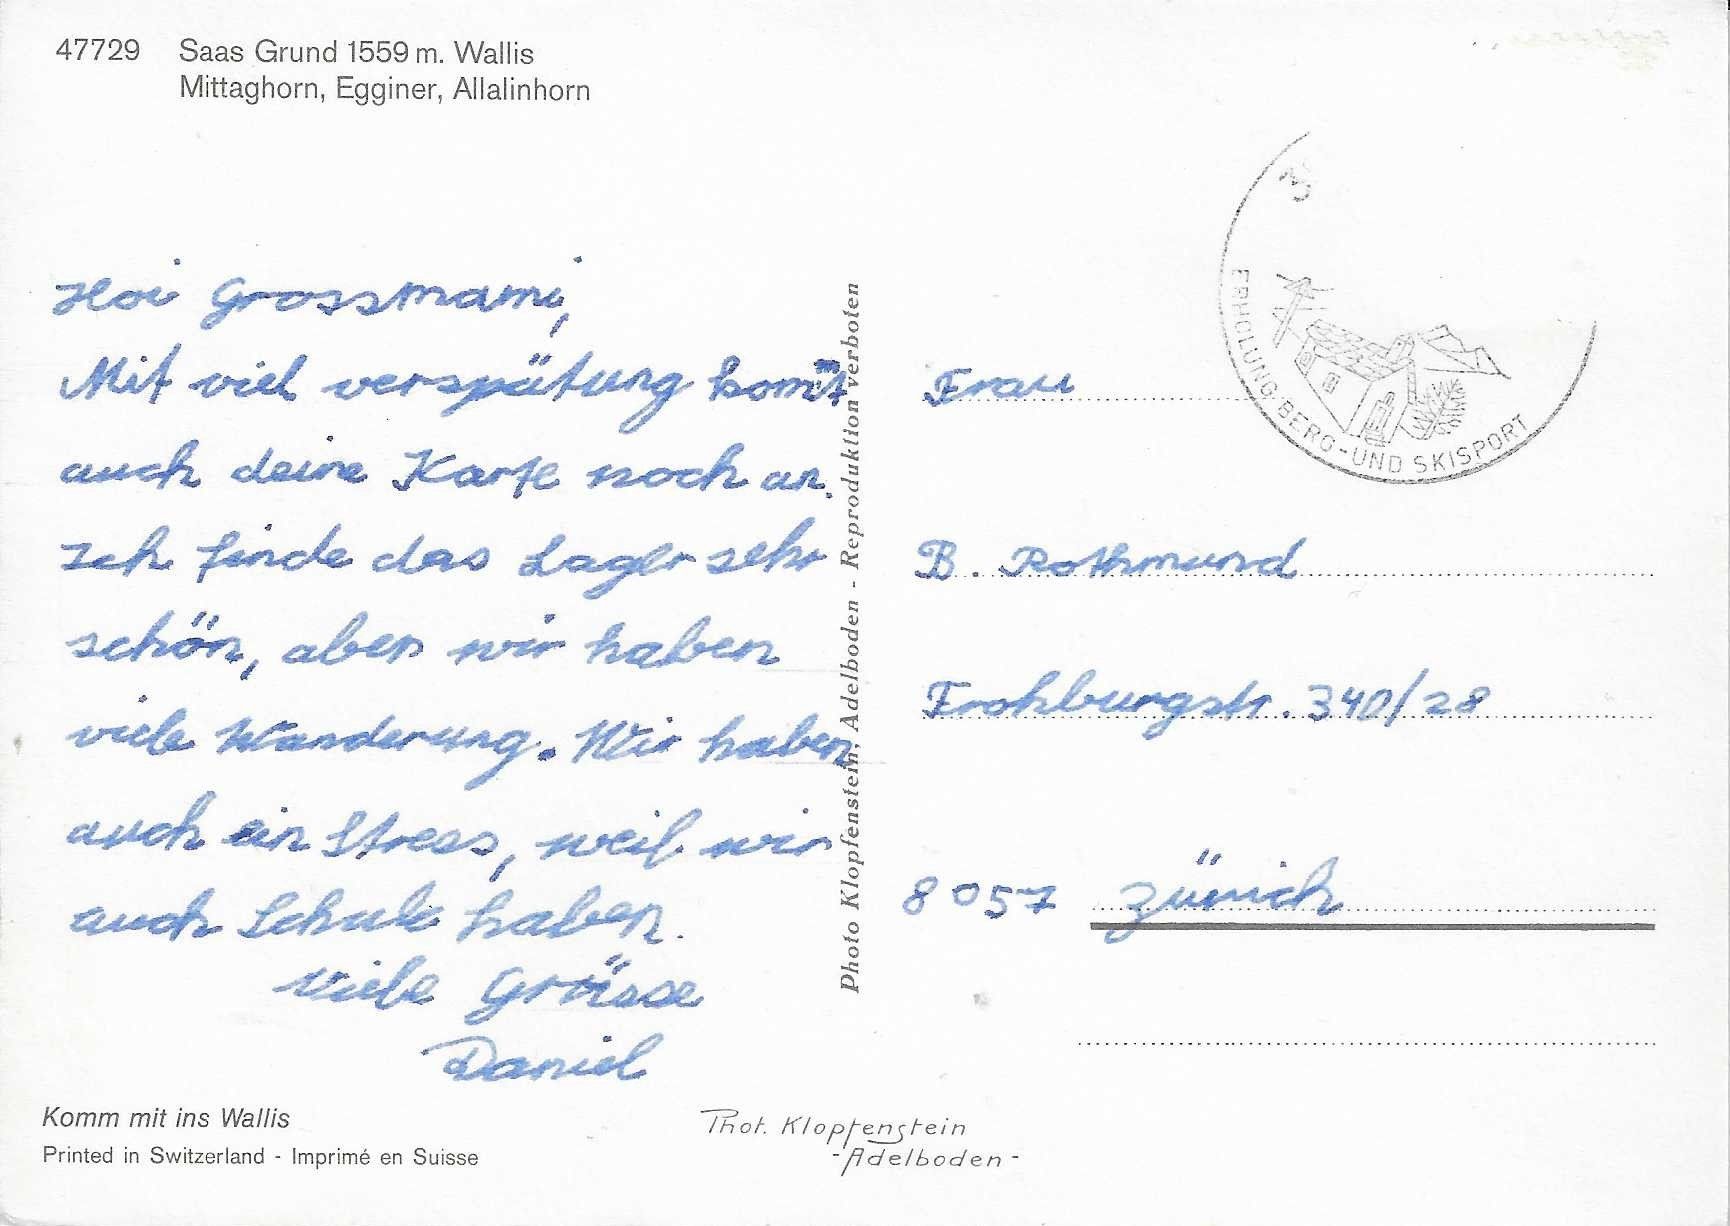 47729 Saas Grund 1559 m. Wallis
Mittaghorn, Egginer, Allalinhorn
Hoi Grossmami,
Mit viel verspätung komt
auch deine Karte noch an.
Ich finde das Lager sehr
schön, aber wir haben
viele Wanderung. Wir haben
auch ein Stress, weil wir
auch Schule haben.
Viele Grüsse
Daniel
Komm mit ins Wallis
Printed in Switzerland - Imprimé en Suisse
Photo Klopfenstein, Adelboden - Reproduktion verboten
Phot. Klopfenstein
- Adelboden -
ERHOLUNG BERG - UND SKISPORT
Frau
B. Rothmund
Frohburgstr. 340/28
8057 Zürich